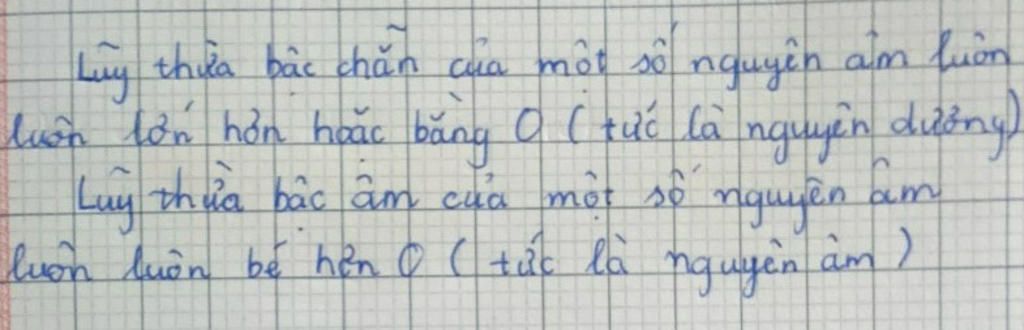 Lũy thừa bậc chẵn của một số nguyên âm luôn
luôn lớn hơn hoặc bằng 0 (tức là nguyên dương)
Luỹ thừa bậc âm của một số nguyên âm
luôn luôn bé hơn 0 (tức là nguyên âm)